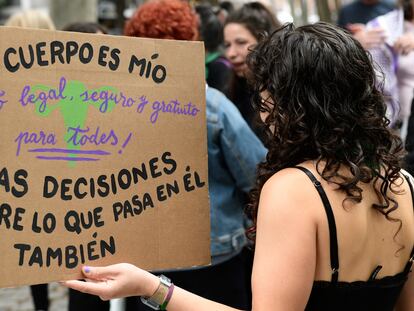 CUERPO ES MÍO
legal, seguro y gratuito
para todes!
AS DECISIONES
RE LO QUE PASA EN ÉL
TAMBIÉN